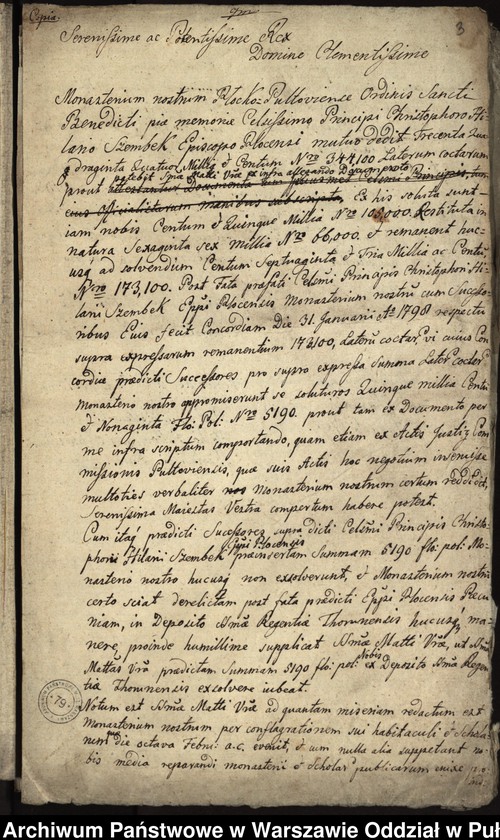 Copia
3
Serenissime ac Potentissime Rex
Domine Clementissime
Monasterium nostrum Plocko-Pultoviense Ordinis Sancti
Benedicti piæ memoriæ Celsissimo Principi Christophoro Hi-
lario Szembek Episcopo Plocensi mutuo dedit Trecenta Qua-
draginta Quatuor Millia & Centum Nro 344,100 Laterum coctarum
prout
attestantur Documenta
manibus subscripta Ex his soluta sunt
iam nobis Centum & Quinque Millia Nro 105,000 Restituta in
natura Sexaginta Sex Millia Nro 66,000. & remanent huc-
usq ad solvendum Centum Septuaginta & Tria Millia ac Centum
Nro 173,100. Post Fata præfati Celsmi Principis Christophori Hi-
larii Szembek Eppi Plocensis Monasterium nostrũ cum Succesſo-
ribus Eius fecit Concordiam Die 31. Januarii Ao 1798 respectu
supra expressarum remanentium 173100, Laterũ coctar, vi cuius Con-
cordiæ prædicti Successores pro supra expressa summa Later coctar
Monasterio nostro appromiserunt se soluturos Quinque millia Centum
& Nonaginta Flo: Pol: Nro 5190. prout tam ex Documento per
me infra scriptum comportando, quam etiam ex Actis Justiz Com-
missionis Pultoviensis, quæ suis Actis hoc negotium inseruisse
multoties verbaliter Monasterium nostrum certum reddidit,
Serenissima Maiestas Vestra compertum habere potest.
Cum itaq prædicti Successores supra dicti Celsmi Principis Christo-
phori Hilarii Szembek Eppi Plocensis præinsertam Summam 5190 flo: pol: Mo-
nasterio nostro hucusq non exsolverunt, & Monasterium nostrũ
certo sciat derelictam post fata prædicti Eppi Plocensis Pecu-
niam, in Deposito Regentiæ Thorunensis hucusq ma-
nere, proinde humillime supplicat Matti Vræ, ut
Mattas Vra prædictam Summam 5190 flo: pol: Nobis ex Deposito Regen-
tiæ Thorunensis exsolvere iubeat.
Notum est Matti Vræ ad quantam miseriam redactum est
Monasterium nostrum per conflagrationem sui habitaculi & Schola-
rum quæ die octava Febru: a.c. evenit, & cum nulla alia suppetant no-
bis media reparandi monasterii & Scholar publicarum
79
Archiwum Państwowe w Warszawie Oddział w Puł